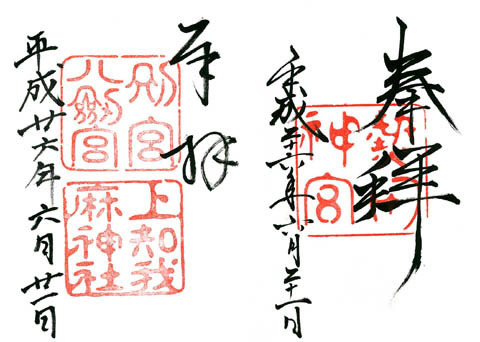 奉拝
熱田
神宮
平成二十六年六月二十一日
奉拝
別宮
八剱宮
上知我
麻神社
平成廿六年六月廿一日